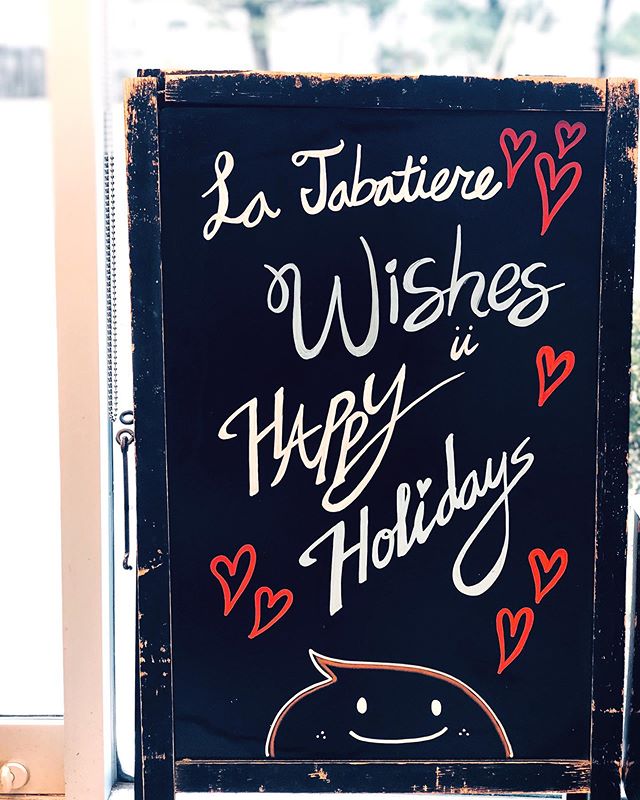 La Tabatiere
Wishes
HAPPY ü
Holidays